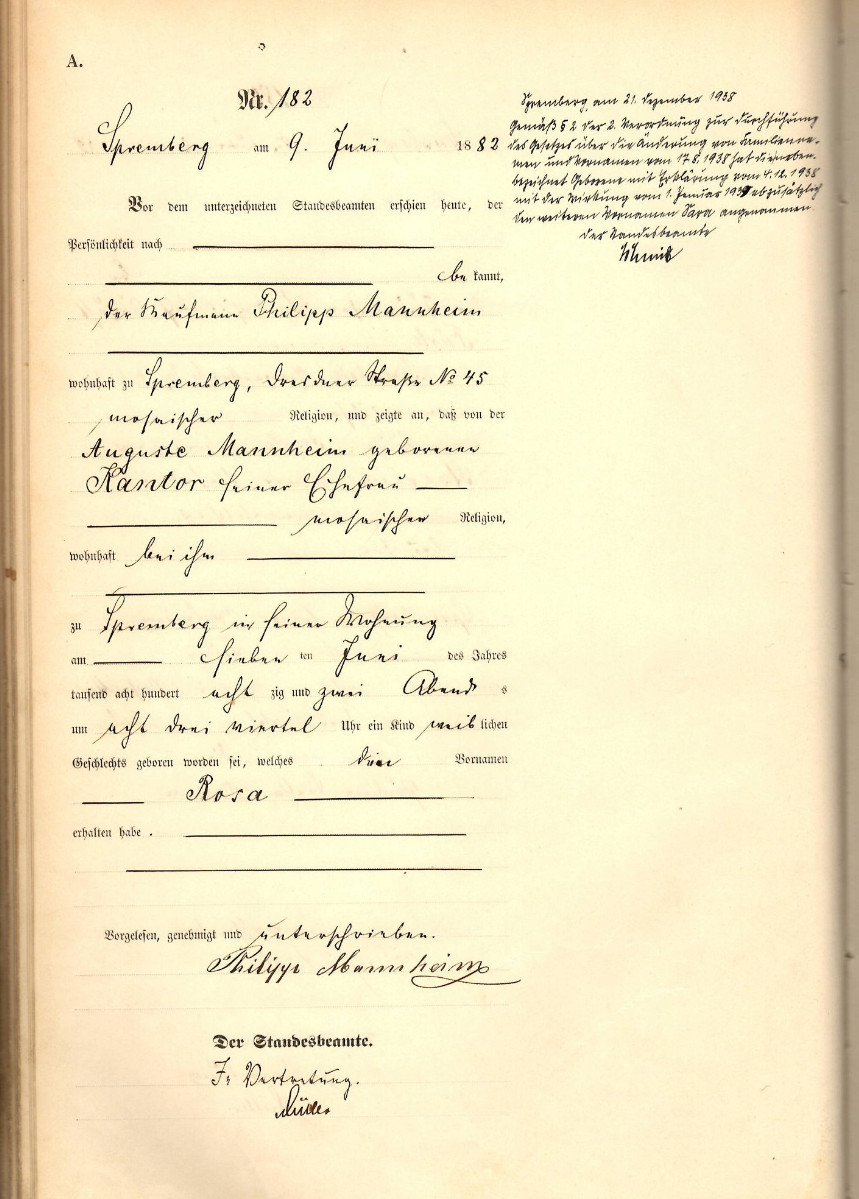 A.
Nr. 182
Spremberg am 9. Juni 1882
Vor dem unterzeichneten Standesbeamten erschien heute, der
Persönlichkeit nach
be kannt,
der Kaufmann Philipp Mannheim
wohnhaft zu Spremberg, Dresdner Straße No 45
mosaischer Religion, und zeigte an, daß von der
Auguste Mannheim geborenen
Kantor seiner Ehefrau
mosaischer Religion,
wohnhaft bei ihm
zu Spremberg in seiner Wohnung
am sieben ten Juni des Jahres
tausend acht hundert acht zig und zwei Abend s
um acht drei viertel Uhr ein Kind weib lichen
Geschlechts geboren worden sei, welches den Vornamen
Rosa
erhalten habe .
Vorgelesen, genehmigt und unterschrieben.
Philipp Mannheim
Der Standesbeamte.
In Vertretung.
Müller
Spremberg, am 21. Dezember 1938
Gemäß § 2 der 2. Verordnung zur Durchführung
des Gesetzes über die Änderung von Familienna-
men und Vornamen vom 17.8.1938 hat die neben-
bezeichnet Geborene mit Erklärung vom 4.12.1938
mit der Wirkung vom 1. Januar 1939 ab zusätzlich
den weiteren Vornamen Sara angenommen.
Der Standesbeamte